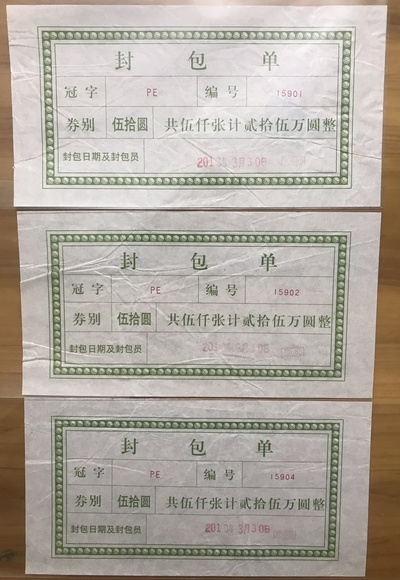 封 包 单
冠字 PE 编号 15901
券别 伍拾圆 共伍仟张计贰拾伍万圆整
封包日期及封包员
封 包 单
冠字 PE 编号 15902
券别 伍拾圆 共伍仟张计贰拾伍万圆整
封包日期及封包员
封 包 单
冠字 PE 编号 15904
券别 伍拾圆 共伍仟张计贰拾伍万圆整
封包日期及封包员